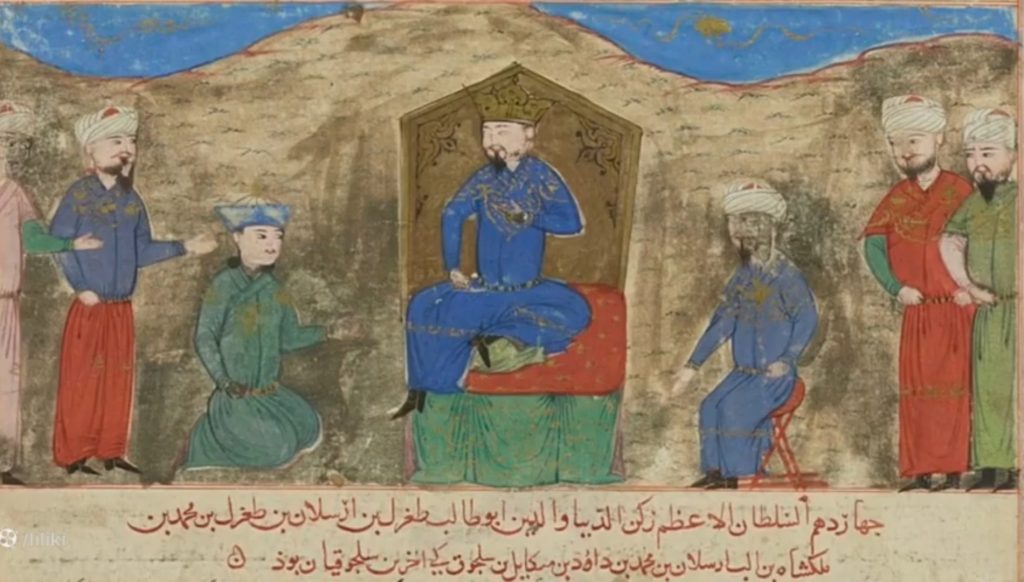 چهاردهم السلطان الاعظم رکن الدنیا والدین ابو طالب طغرل بن ارسلان بن طغرل بن محمد بن
ملکشاه بن الب ارسلان بن محمد بن داود بن میکایل بن سلجوق کی اخرین سلجوقیان بوذ